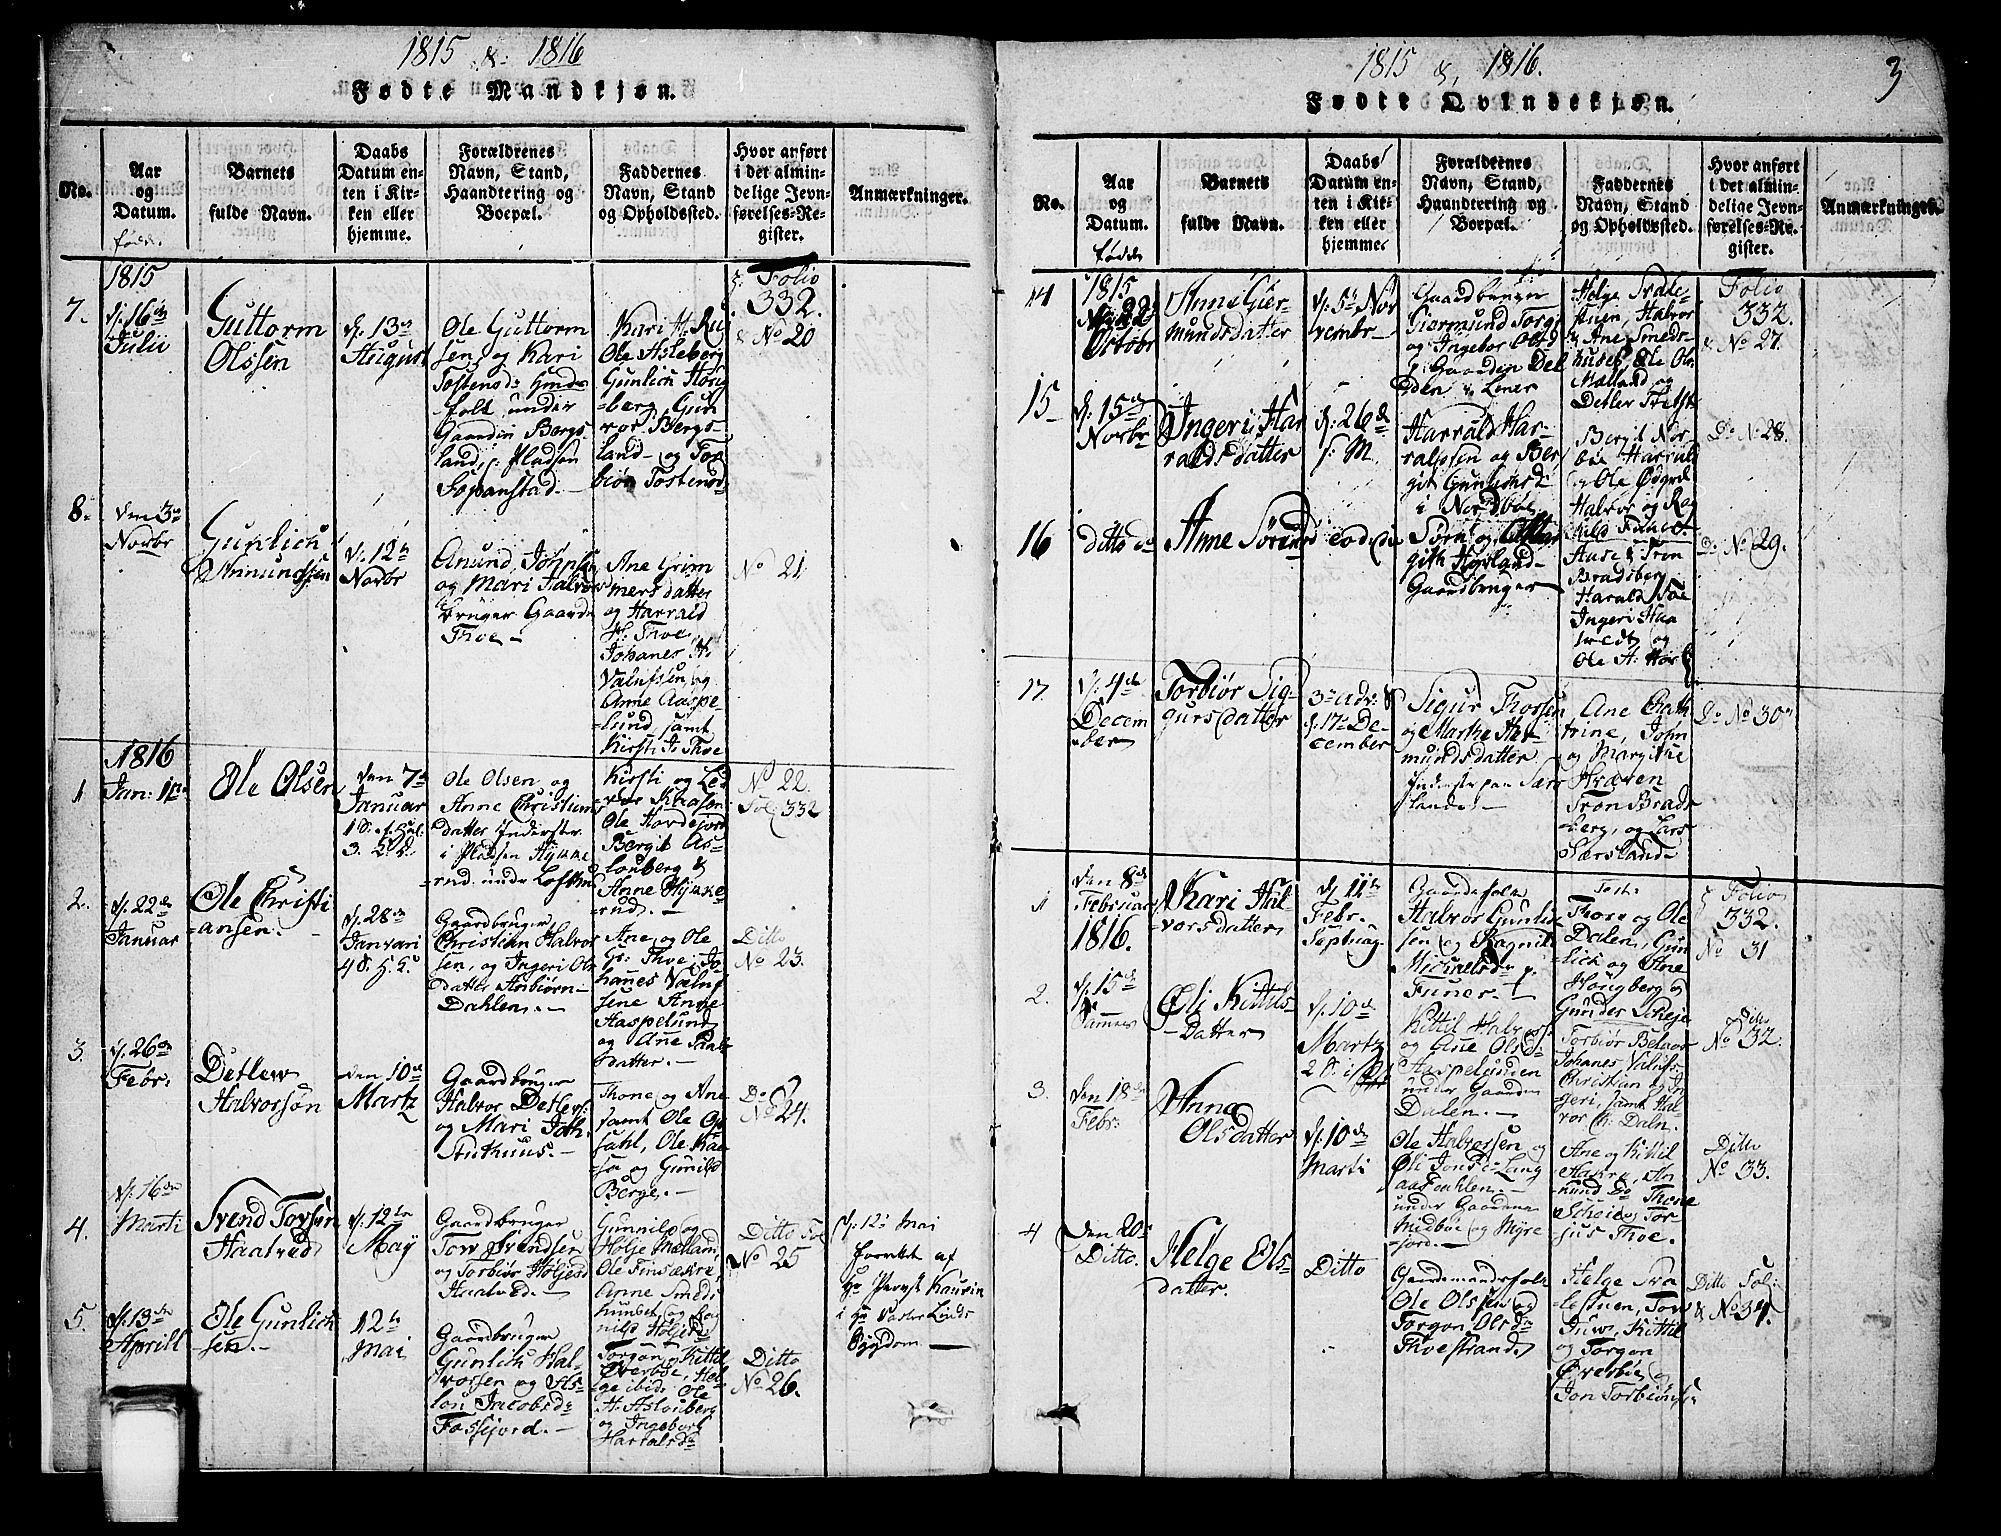 1815 & 1816
Fødte Mandkjøn.
No.
Aar
og
Datum.
født.
Barnets
fulde Navn.
Daabs
Datum en-
ten i Kir-
ken eller
hjemme.
Forældrenes
Navn, Stand,
Haandtering og
Boepæl.
Faddernes
Navn, Stand
og Opholdssted.
Hvor anført
i det almin-
delige Jevn-
førelses-Re-
gister.
Anmærkninger.
1815
7.
16de
Julii
Guttorm
Olssen
13de
August
Ole Guttorm
sen og Kari
Tostensd:
folk under
Gaarden Bergs
land, Pladsen
Sopanstad.
Kari H. Ru
Ole Asleberg
Gunlich Hørg
berg Gun
vor Bergs-
land og Tor
biøn Tostensd
Folio
332.
No 20
8.
den 3de
Novbr
Gunlich
Amundssen
12te
Novbr
Amund Johnsen
og Mari Halvors
bruger Gaarden
Thoe
Ane Grim
mersdatter
og Harrald
H. Thoe
Johanes H.
Valufsen og
Anne Aaspe-
lund samt
Kirsti J. Thoe
No 21.
1816
1
Jan: 1ste
Ole Olsen
den 7de
Januar
Ole Olsen og
Anne Christians
datter Inderster
i Pladsen Hynne
rud under
Kirsti og Led
vor
Ole Hordejord
Bergit As-
louberg &
Anne Hynne
rud.
No 22.
Fol 332
2.
22de
Januar
Ole Christi
ansen.
28de
Januari
Gaardbruger
Christian Halvor
sen, og Ingeri Ols
datter Anbiørn
Dahlen.
Ane og Ole
Gr: Thoe, Jo-
hanes Valuf
sene Anne
Haspelund
og Ane
datter.
Ditto
No 23.
3.
26de
Febr:
Detlew
Halvorsøn
den 10de
Martz
Gaardbruger
Halvor Detlevs:
og Mari Joh.
Thone og Ane
samt Ole Op
sahl, Ole Kaa
sa og Gunild
Berge.
Do
No 24.
4.
16de
Marti
Svend Torsen
Haatved
12te
May
Gaardbruger
Tow Svendsen
og Torbiør Høljesd
Haatved.
Gunnild og
Holje Mæland,
Ole Finsækre,
Anne Smeds
huuset og Rag
nild Høljesd
Ditto Fol
No 25
12te Mai
forrettet af
Hr Provst Kaurin
i Hr Pastor Linds
Sygdom
5.
13de
Aprill
Ole Gunlich
sen.
12te
Mai
Gaardbruger
Gunlich Hal-
vorsen og As-
lou Jacobsd
Fossejord.
Torgon og Kittil
Øverbøe, Hel-
ge ibid: Ole
H. Aslouberg
og Ingeborg
Harralsd
Ditto
No 26.
1815 & 1816.
3
Fødte Qvindekjøn.
No.
Aar
og
Datum.
født
Barnets
fulde Navn.
Daabs
Datum en-
ten i Kir-
ken eller
hjemme.
Forældrenes
Navn, Stand,
Haandtering og
Boepæl.
Faddernes
Navn, Stand
og Opholdssted.
Hvor anført
i det almin-
delige Jevn-
førelses-Re-
gister.
Anmærkninger.
14
1815
22
Octobr
Anne Gier-
mundsdatter
5te No
vembr
Gaardbruger
Giermund Torgr
og Ingebor Olsd
Gaarden Dal
Helge Trale-
stuen, Halvor
& Ane Smeds-
huset, Ole Ols
Mælland og
Detlev
Folio
332.
No 27.
15
15de
Novbr
Ingeri Har
raldsdatter
26de
Harrald Har-
raldsen og Ber
git Gunlichsd
i Nordboe
Bergit Nor-
boe Harrald
og Ole Ødgrd
Halvor og Rag
nild
Do No 28.
16
ditto do
Anne Sørens
eodem die
Sørn og Mar
gith Hørland
Gaardbruger
Aase & Tron
Bradsberg
Harald Toe
Ingeri Haa
tvedt og
Ole A. Hør
Do No 29.
17
4de
Decem
ber
Torbiør Sig-
gursdatter
3de adv:
17de De-
cember
Sigur Thorsen
og Marthe Her
mundsdatter
Inderster paa Særs
lande
Ane Cath
rine, John
og Margithe
Kræven
Tron Brads
berg, og Lars
Særslande
Do No 30
1
den 8de
Februar
1816.
Kari Hal-
vorsdatter
11te
Febr.
Septuag
Gaardefolk
Halvor Gunlich
sen og Ragnild
Michaelsd
Funer.
Thore og Ole
Dalen, Gun
lich og Ane
Hørgberg og
Gunder Skeje
Folio
332.
No 31
2.
15de
Øli Kittils-
datter
10de
Martz
Kittil Halvors
og Ane Olsd:
Haspelundien
under Gaarden
Dalen.
Torbiør
Johanes Valufs
Christian og In
geri samt Hal-
vor Ch: Daln
Ditto
No 32.
3.
den 18de
Febr:
Anna
Olsdatter
10de
Marti
Ole Halvorssen og
Øli Jonsd: Lang
aasdahlen.
under Gaardene
Midbøe og Myre
fjord.
Ane og Kittil
Aakre, Am
und Do Thone
Scheie Tor-
jus Thoe.
Ditto
No 33.
4
den 20de
Ditto.
Helge Ols-
datter.
Ditto
Gaardmandsfolk
Ole Olsen og
Torgon Olsd
Thoestrand
Helge Tra
lestuen, Tow
Juw, Kittil
og Torgon
Øverbøe og
Jon Torbiøns.
Ditto Fol:
& No 34.